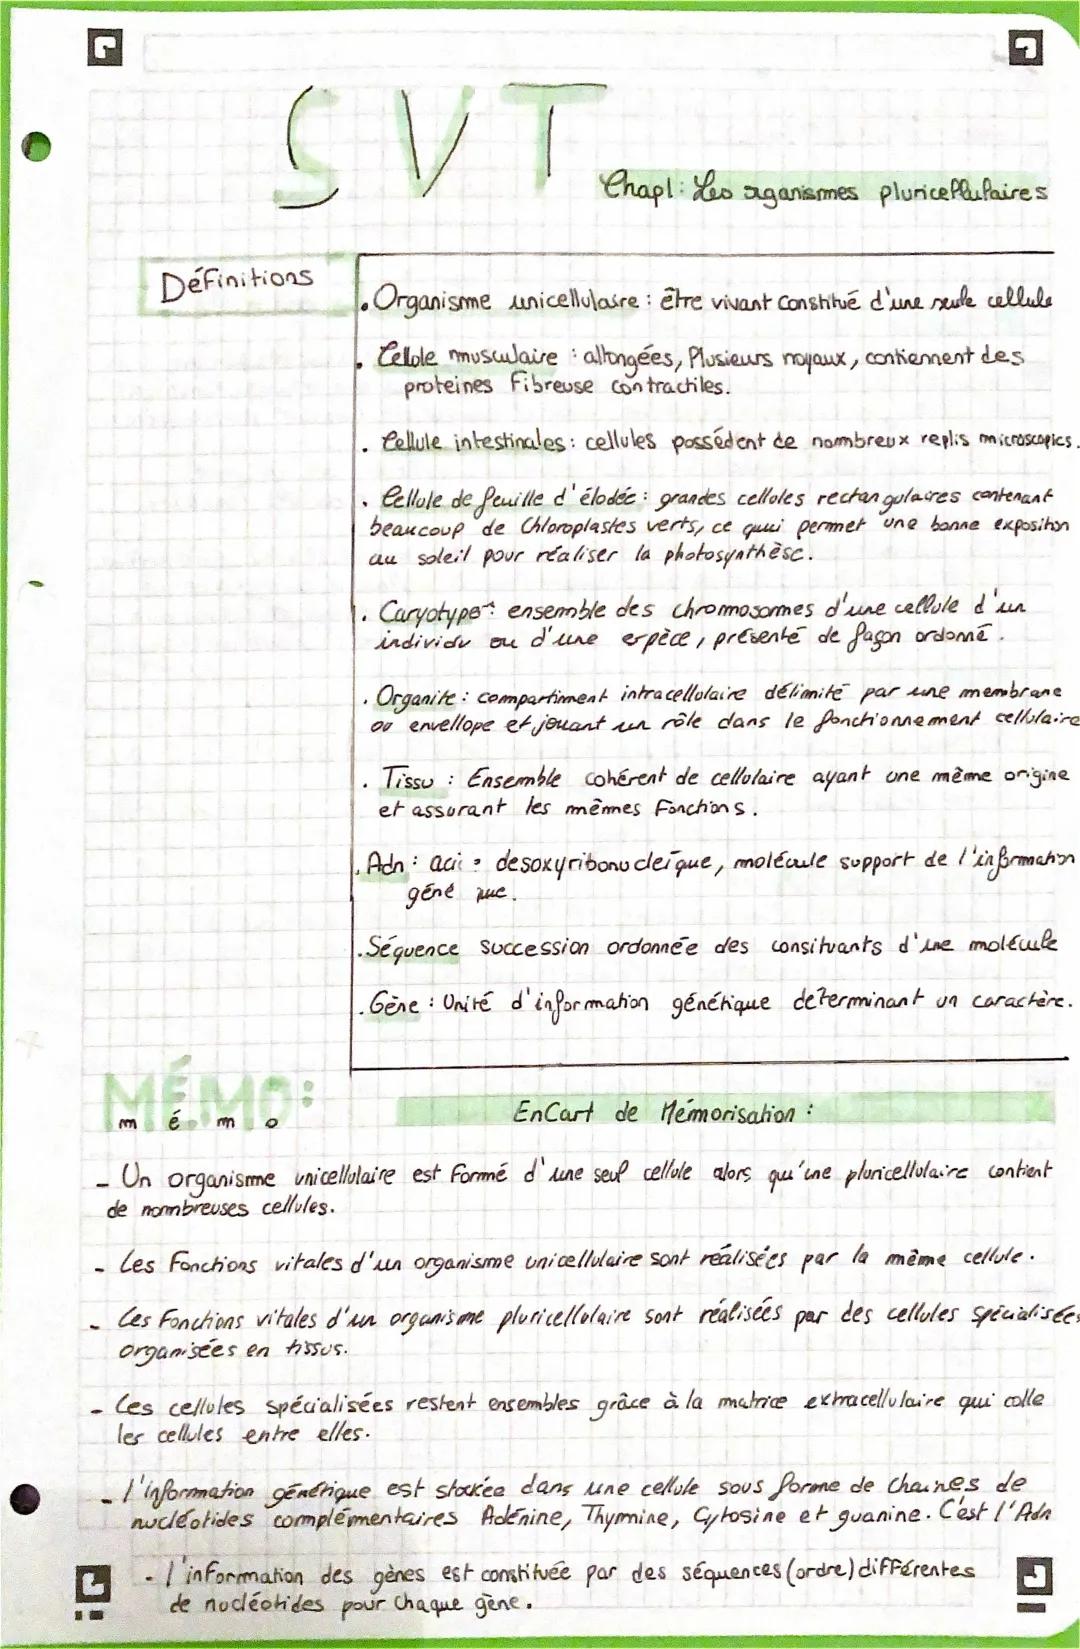 SVT
Chap1: Les organismes pluricellulaires
Définitions
. Organisme unicellulaire : être vivant constitué d'une seule cellule
. Cellule musculaire : allongées, Plusieurs noyaux, contiennent des
proteines Fibreuse contractiles.
. Cellule intestinales : cellules possédent de nombreux replis microscopics.
. Cellule de feuille d'élodéé : grandes cellules rectangulaires contenant
beaucoup de Chloroplastes verts, ce qui permet une bonne exposition
au soleil pour réaliser la photosynthèse.
. Caryotype : ensemble des chromosomes d'une cellule d'un
individu ou d'une espèce, présenté de façon ordonné.
. Organite : compartiment intracellulaire délimité par une membrane
ou envellope et jouant un rôle dans le fonctionnement cellulaire
. Tissu : Ensemble cohérent de cellulaire ayant une même origine
et assurant les mêmes Fonctions.
. Adn : desoxyribonucleïque, molécule support de l'information
. Séquence succession ordonnée des consituants d'une molécule
. Gène : Unité d'information génétique determinant un caractère.
MÉMO:
m é m o
EnCart de Mémorisation :
- Un organisme unicellulaire est Formé d'une seul cellule alors qu'une pluricellulaire contient
de nombreuses cellules.
- Les Fonctions vitales d'un organisme unicellulaire sont réalisées par la même cellule.
- Les Fonctions vitales d'un organisme pluricellulaire sont réalisées par des cellules spécialisées
organisées en tissus.
- Ces cellules spécialisées restent ensembles grâce à la matrice extracellulaire qui colle
les cellules entre elles.
- l'information génétique est stockée dans une cellule sous forme de chaines de
nucléotides complémentaires Adénine, Thymine, Cytosine et guanine. C'est l'Adn
- l'information des gènes est constituée par des séquences (ordre) différentes
de nucléotides pour chaque gène.